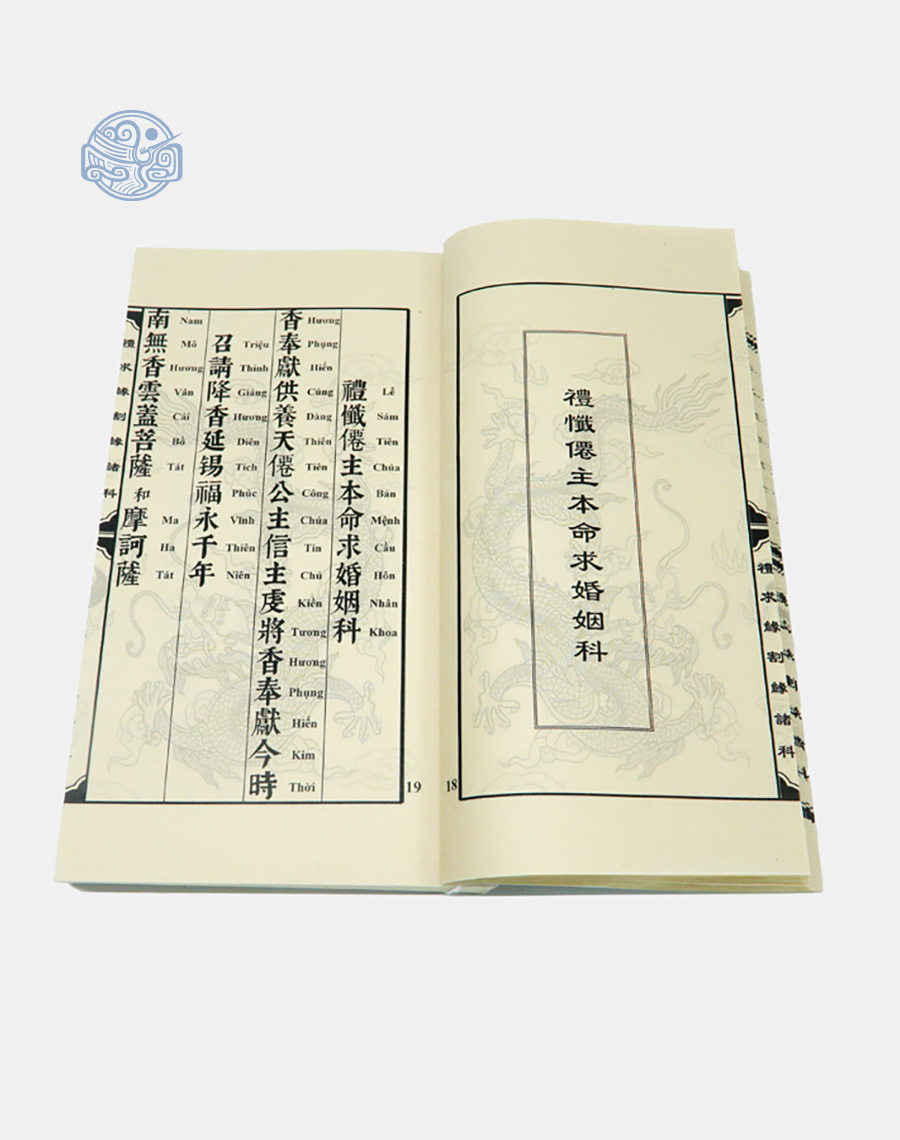 禮求緣割緣諸科
禮懺僊主本命求婚姻科
18
禮懺僊主本命求婚姻科
Lễ Sám Tiên Chúa Bản Mệnh Cầu Hôn Nhân Khoa
香奉獻供養天僊公主信主虔將香奉獻今時
Hương Phụng Hiến Cúng Dàng Thiên Tiên Công Chúa Tín Chủ Kiền Tương Hương Phụng Hiến Kim Thời
召請降香延锡福永千年
Triệu Thỉnh Giáng Hương Diên Tích Phúc Vĩnh Thiên Niên
南無香雲蓋菩薩 和 摩訶薩
Nam Mô Hương Vân Cái Bồ Tát Ma Ha Tát
禮求緣割緣諸科
19